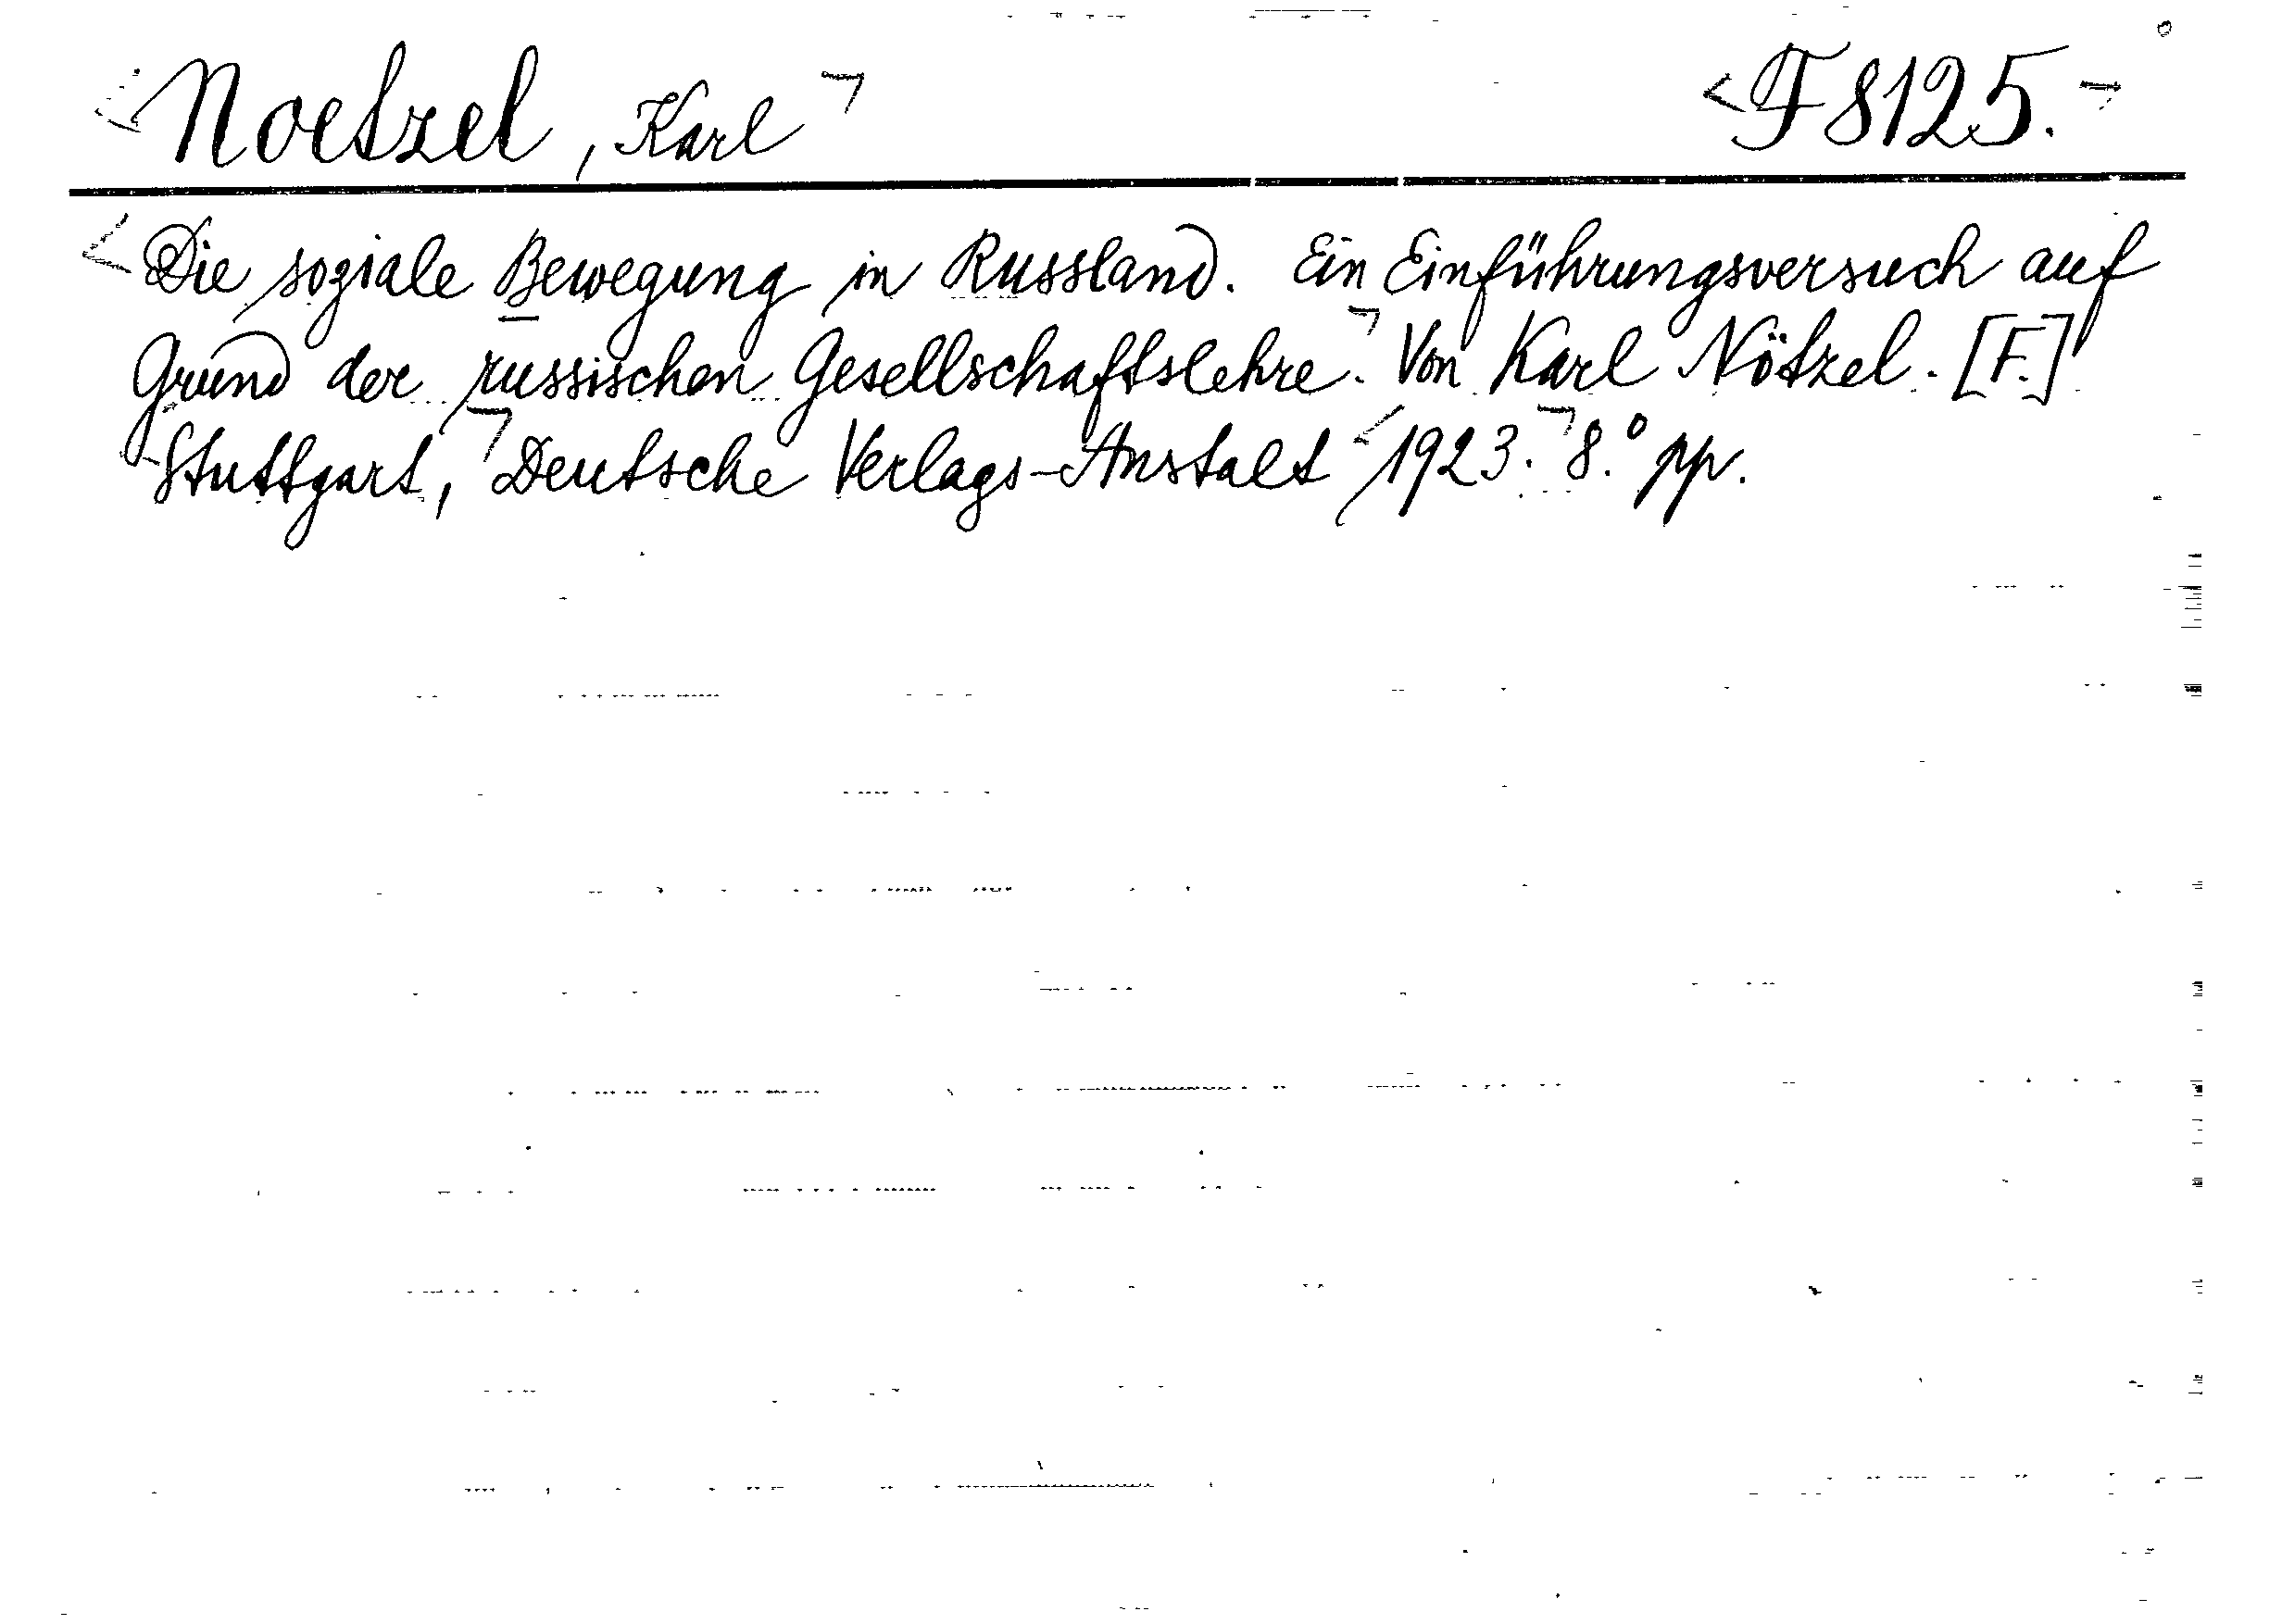 Noetzel, Karl F 8125.
Die soziale Bewegung in Russland. Ein Einführungsversuch auf
Grund der russischen Gesellschaftslehre. Von Karl Nötzel. [F.]
Stuttgart, Deutsche Verlags-Anstalt 1923. 8.° pp.